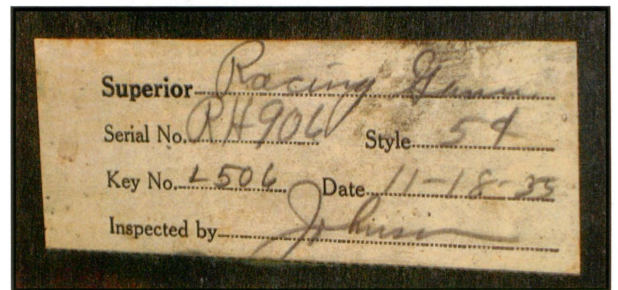 Superior Racing Game
Serial No. RH906 Style 54
Key No. L506 Date 11-18-35
Inspected by Johnson